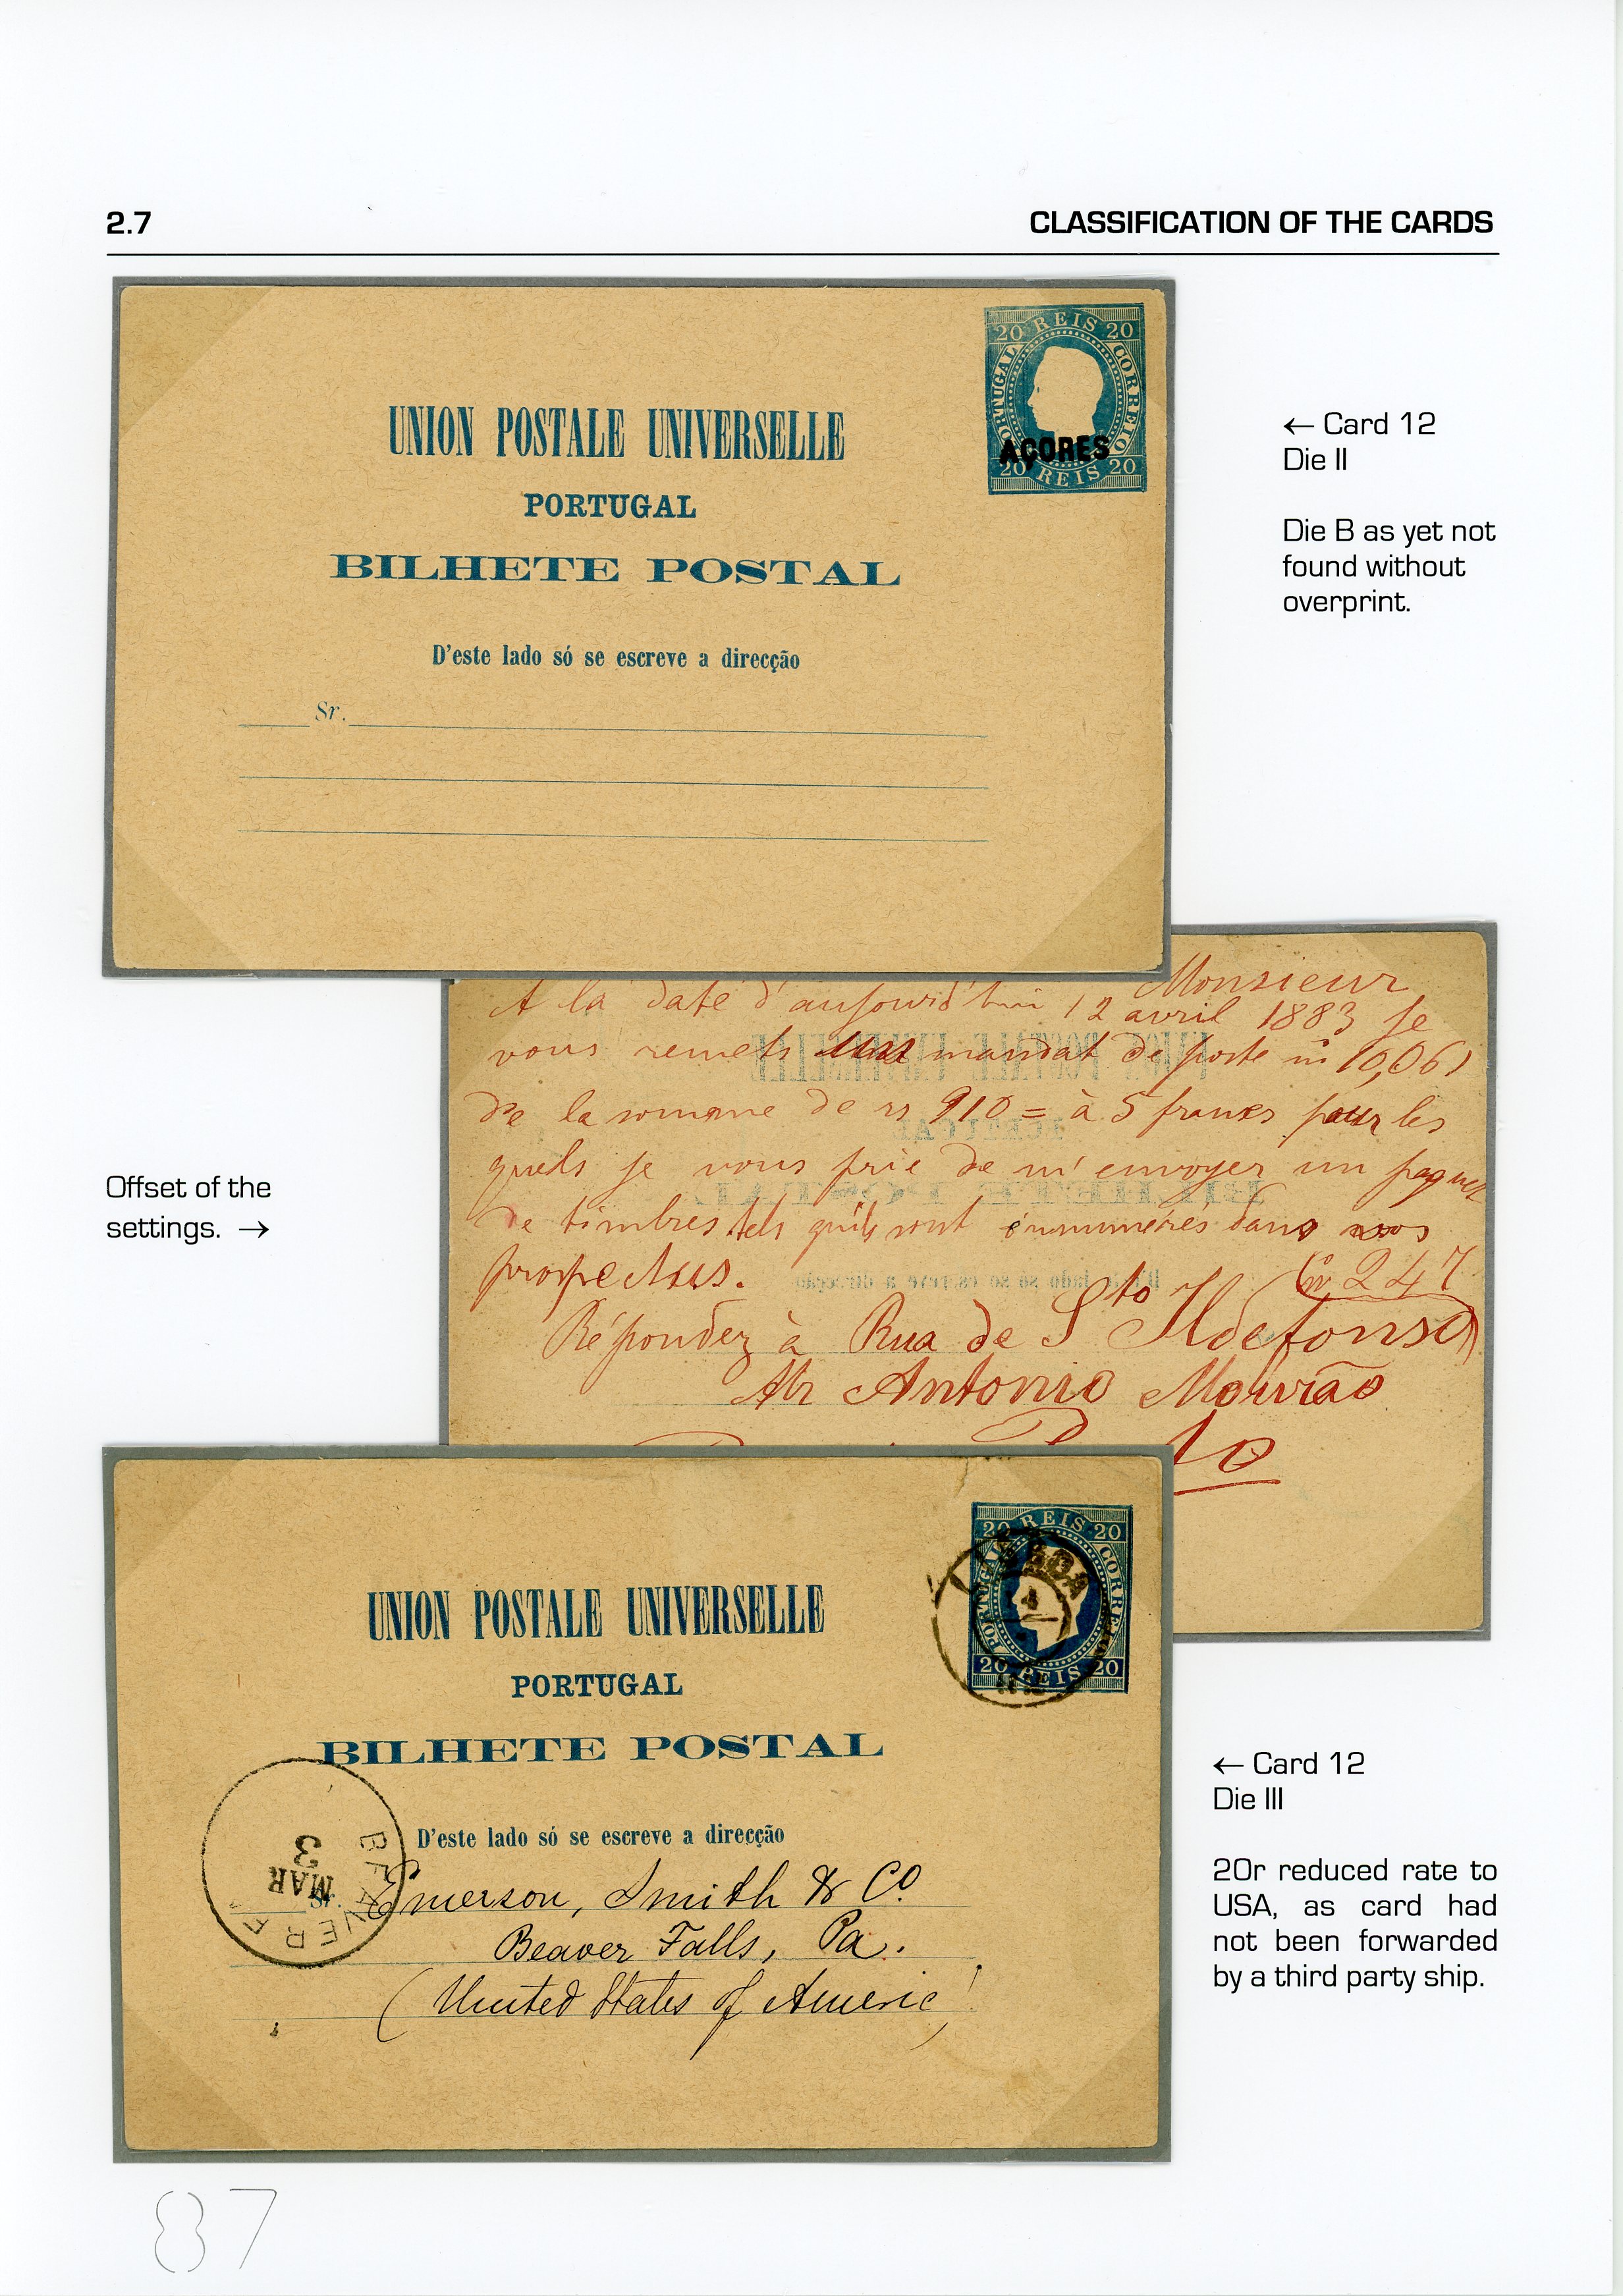 2.7
CLASSIFICATION OF THE CARDS
20 REIS 20
PORTUGAL
CORREIO
AÇORES
20 REIS 20
UNION POSTALE UNIVERSELLE
PORTUGAL
BILHETE POSTAL
D'este lado só se escreve a direcção
Sr.
← Card 12
Die II
Die B as yet not
found without
overprint.
Monsieur
A la date d'aujourd'hui 12 avril 1883 je
vous remets un mandat de poste nº 10,061
de la somme de rs 910 = à 5 francs pour les
quels je vous prie de m'envoyer un paquet
de timbres tels qu'ils sont énnumérés dans vos
prospectus.
247
Répondez à Rua de Sto Ildefonso
Antonio Mourão
Porto
Offset of the
settings. →
20 REIS 20
PORTUGAL
CORREIO
20 REIS 20
UNION POSTALE UNIVERSELLE
PORTUGAL
BILHETE POSTAL
D'este lado só se escreve a direcção
BEAVER F
MAR
3
Sr. Emerson, Smith & Co.
Beaver Falls, Pa.
(United States of Americ
← Card 12
Die III
20r reduced rate to
USA, as card had
not been forwarded
by a third party ship.
87